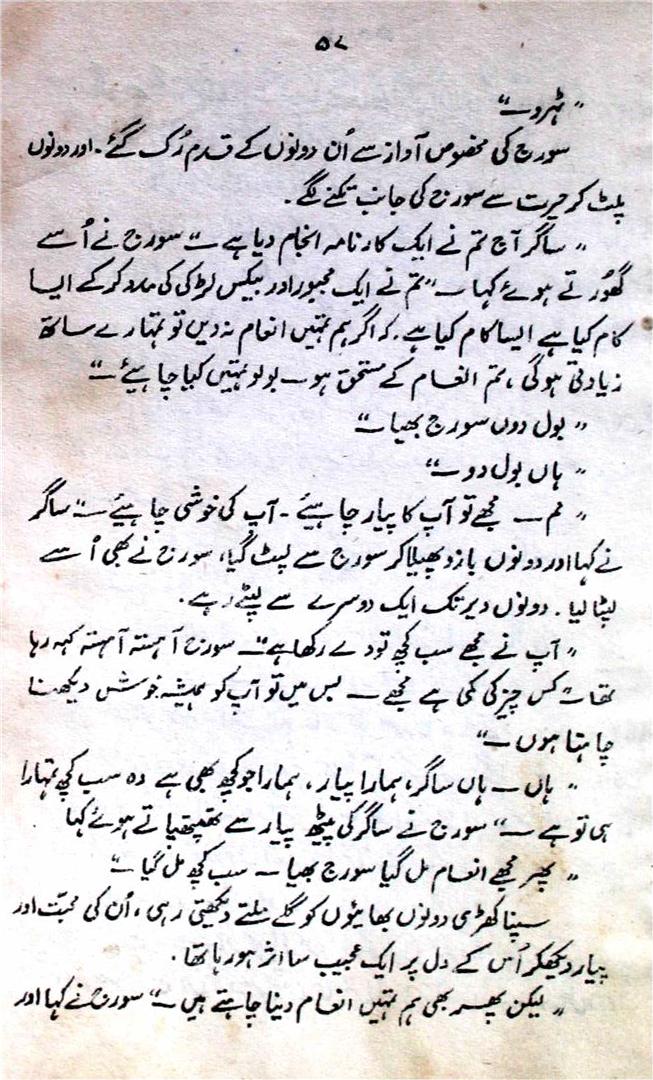 ۵۷
”ٹہرو —“
سورج کی مخصوص آواز سے اُن دونوں کے قدم رُک گئے ۔ اور دونوں
پلٹ کر حیرت سے سورج کی جانب تکنے لگے ۔
”ساگر آج تم نے ایک کارنامہ انجام دیا ہے —“ سورج نے اُسے
گھُورتے ہوئے کہا — ”تم نے ایک مجبور اور بیکس لڑکی کی مدد کر کے ایسا
کام کیا ہے ایسا کام کیا ہے . کہ اگر ہم تمہیں انعام نہ دیں تو تمہارے ساتھ
زیادتی ہوگی ، تم انعام کے مستحق ہو — بولو تمہیں کیا چاہیئے —“
”بول دوں سورج بھیا —“
”ہاں بول دو —“
”مم — مجھے تو آپ کا پیار چاہیئے ۔ آپ کی خوشی چاہیئے —“ ساگر
نے کہا اور دونوں بازو پھیلا کر سورج سے لپٹ گیا، سورج نے بھی اُسے
لپٹا لیا . دونوں دیر تک ایک دوسرے سے لپٹے رہے .
”آپ نے مجھے سب کچھ تو دے رکھا ہے“ — سورج آہستہ آہستہ کہہ رہا
تھا — ”کس چیز کی کمی ہے مجھے — بس میں تو آپ کو ہمیشہ خوش دیکھنا
چاہتا ہوں —“
”ہاں — ہاں ساگر، ہمارا پیار ، ہمارا جو کچھ بھی ہے وہ سب کچھ تمہارا
ہی تو ہے —“ سورج نے ساگر کی پیٹھ پیار سے تھپتھپاتے ہوئے کہا
”پھر مجھے انعام مل گیا سورج بھیا — سب کچھ مل گیا —“
سپنا کھڑی دونوں بھائیوں کو گلے ملتے دیکھتی رہی ، اُن کی محبّت اور
پیار دیکھکر اُس کے دل پر ایک عجیب سا اثر ہو رہا تھا .
”لیکن پھر بھی ہم تمہیں انعام دینا چاہتے ہیں —“ سورج نے کہا اور